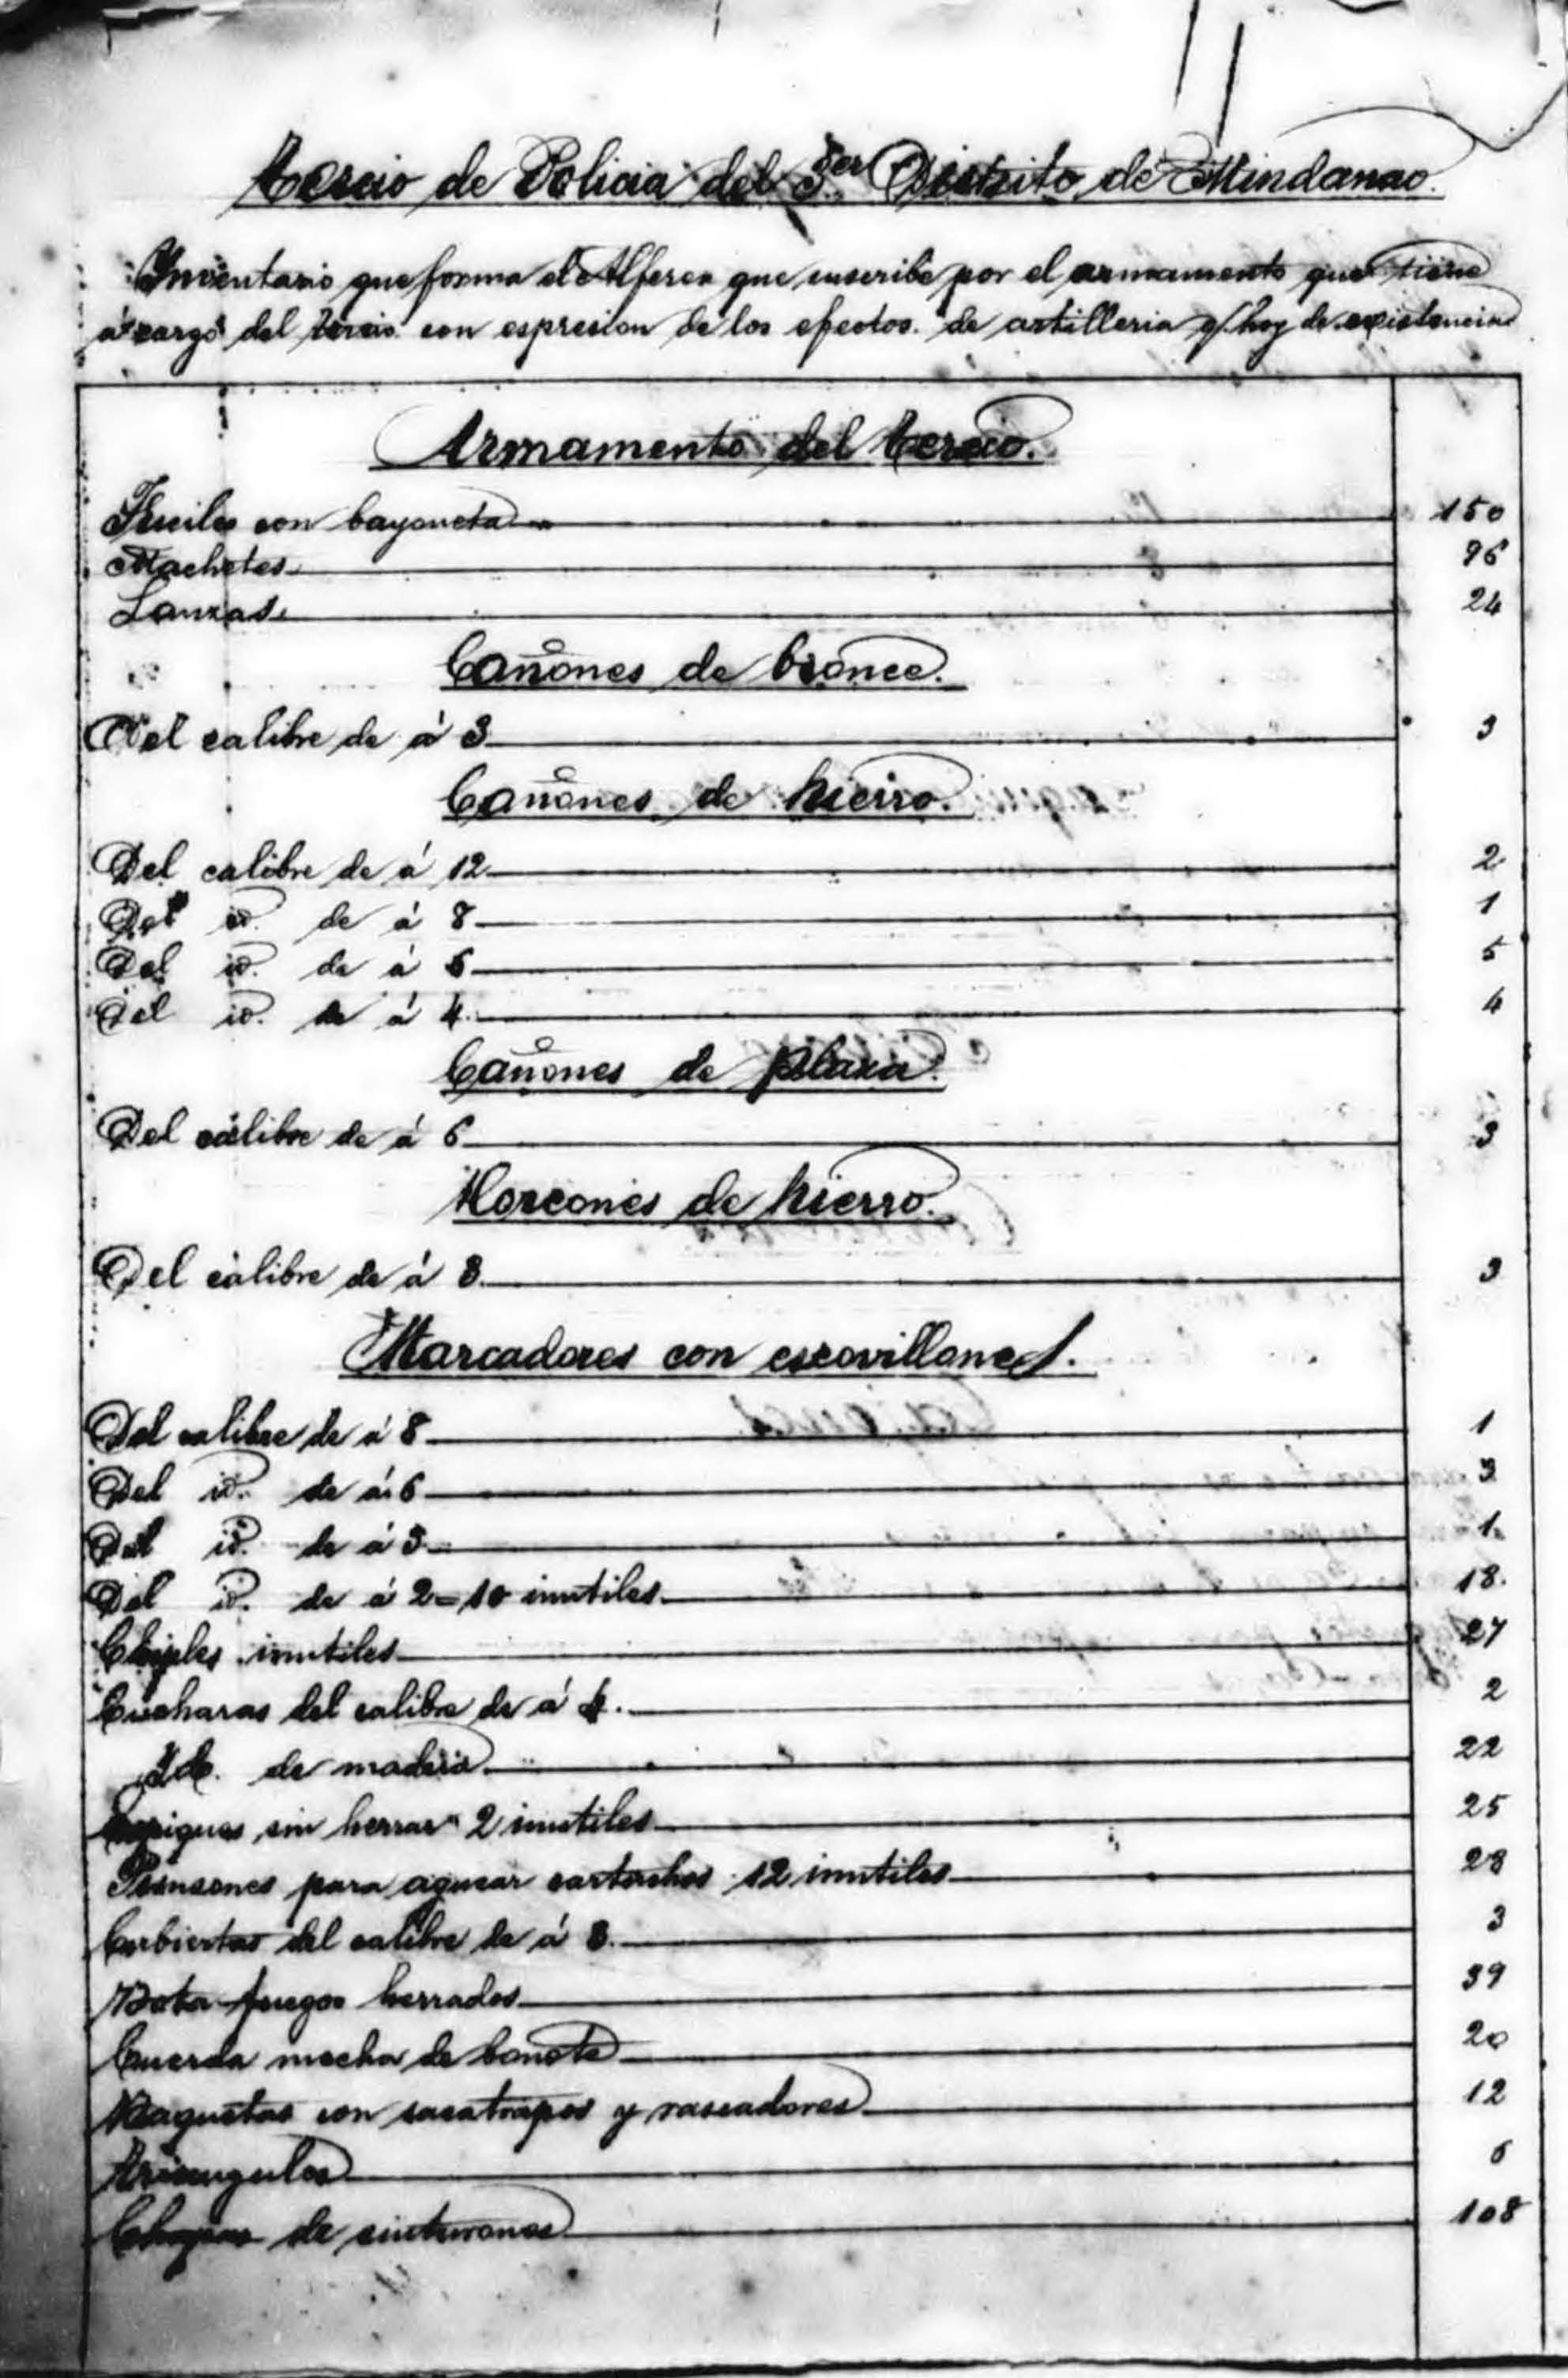 Tercio de Policia del 3er Distrito de Mindanao.
Inventario que forma el Alferez que suscribe por el armamento que tiene
á cargo del tercio con espresion de los efectos de artilleria q/ hoy de existencia
Armamento del tercio.
Fusiles con bayoneta 150
Machetes 96
Lanzas 24
Cañones de bronce.
Del calibre de á 3 3
Cañones de hierro.
Del calibre de á 12 2
Del id. de á 8 1
Del id. de á 6 5
Del id. de á 4 4
Cañones de plaza.
Del calibre de á 6 3
Morcones de hierro.
Del calibre de á 8 3
Marcadores con escovillones.
Del calibre de á 8 1
Del id. de á 6 3
Del id. de á 3 1
Del id. de á 2=10 inutiles 18.
inutiles 27
Cucharas del calibre de á 4. 2
Id. de madera 22
Espiques sin herrar 2 inutiles 25
Punsones para agucar cartuchos 12 inutiles 28
Cubiertas del calibre de á 8. 3
Bota-fuegos herrados 39
Cuerda mecha de bonote 20
Baquetas con sacatrapos y rascadores 12
Triangulos 6
Chapas de sinturones 108